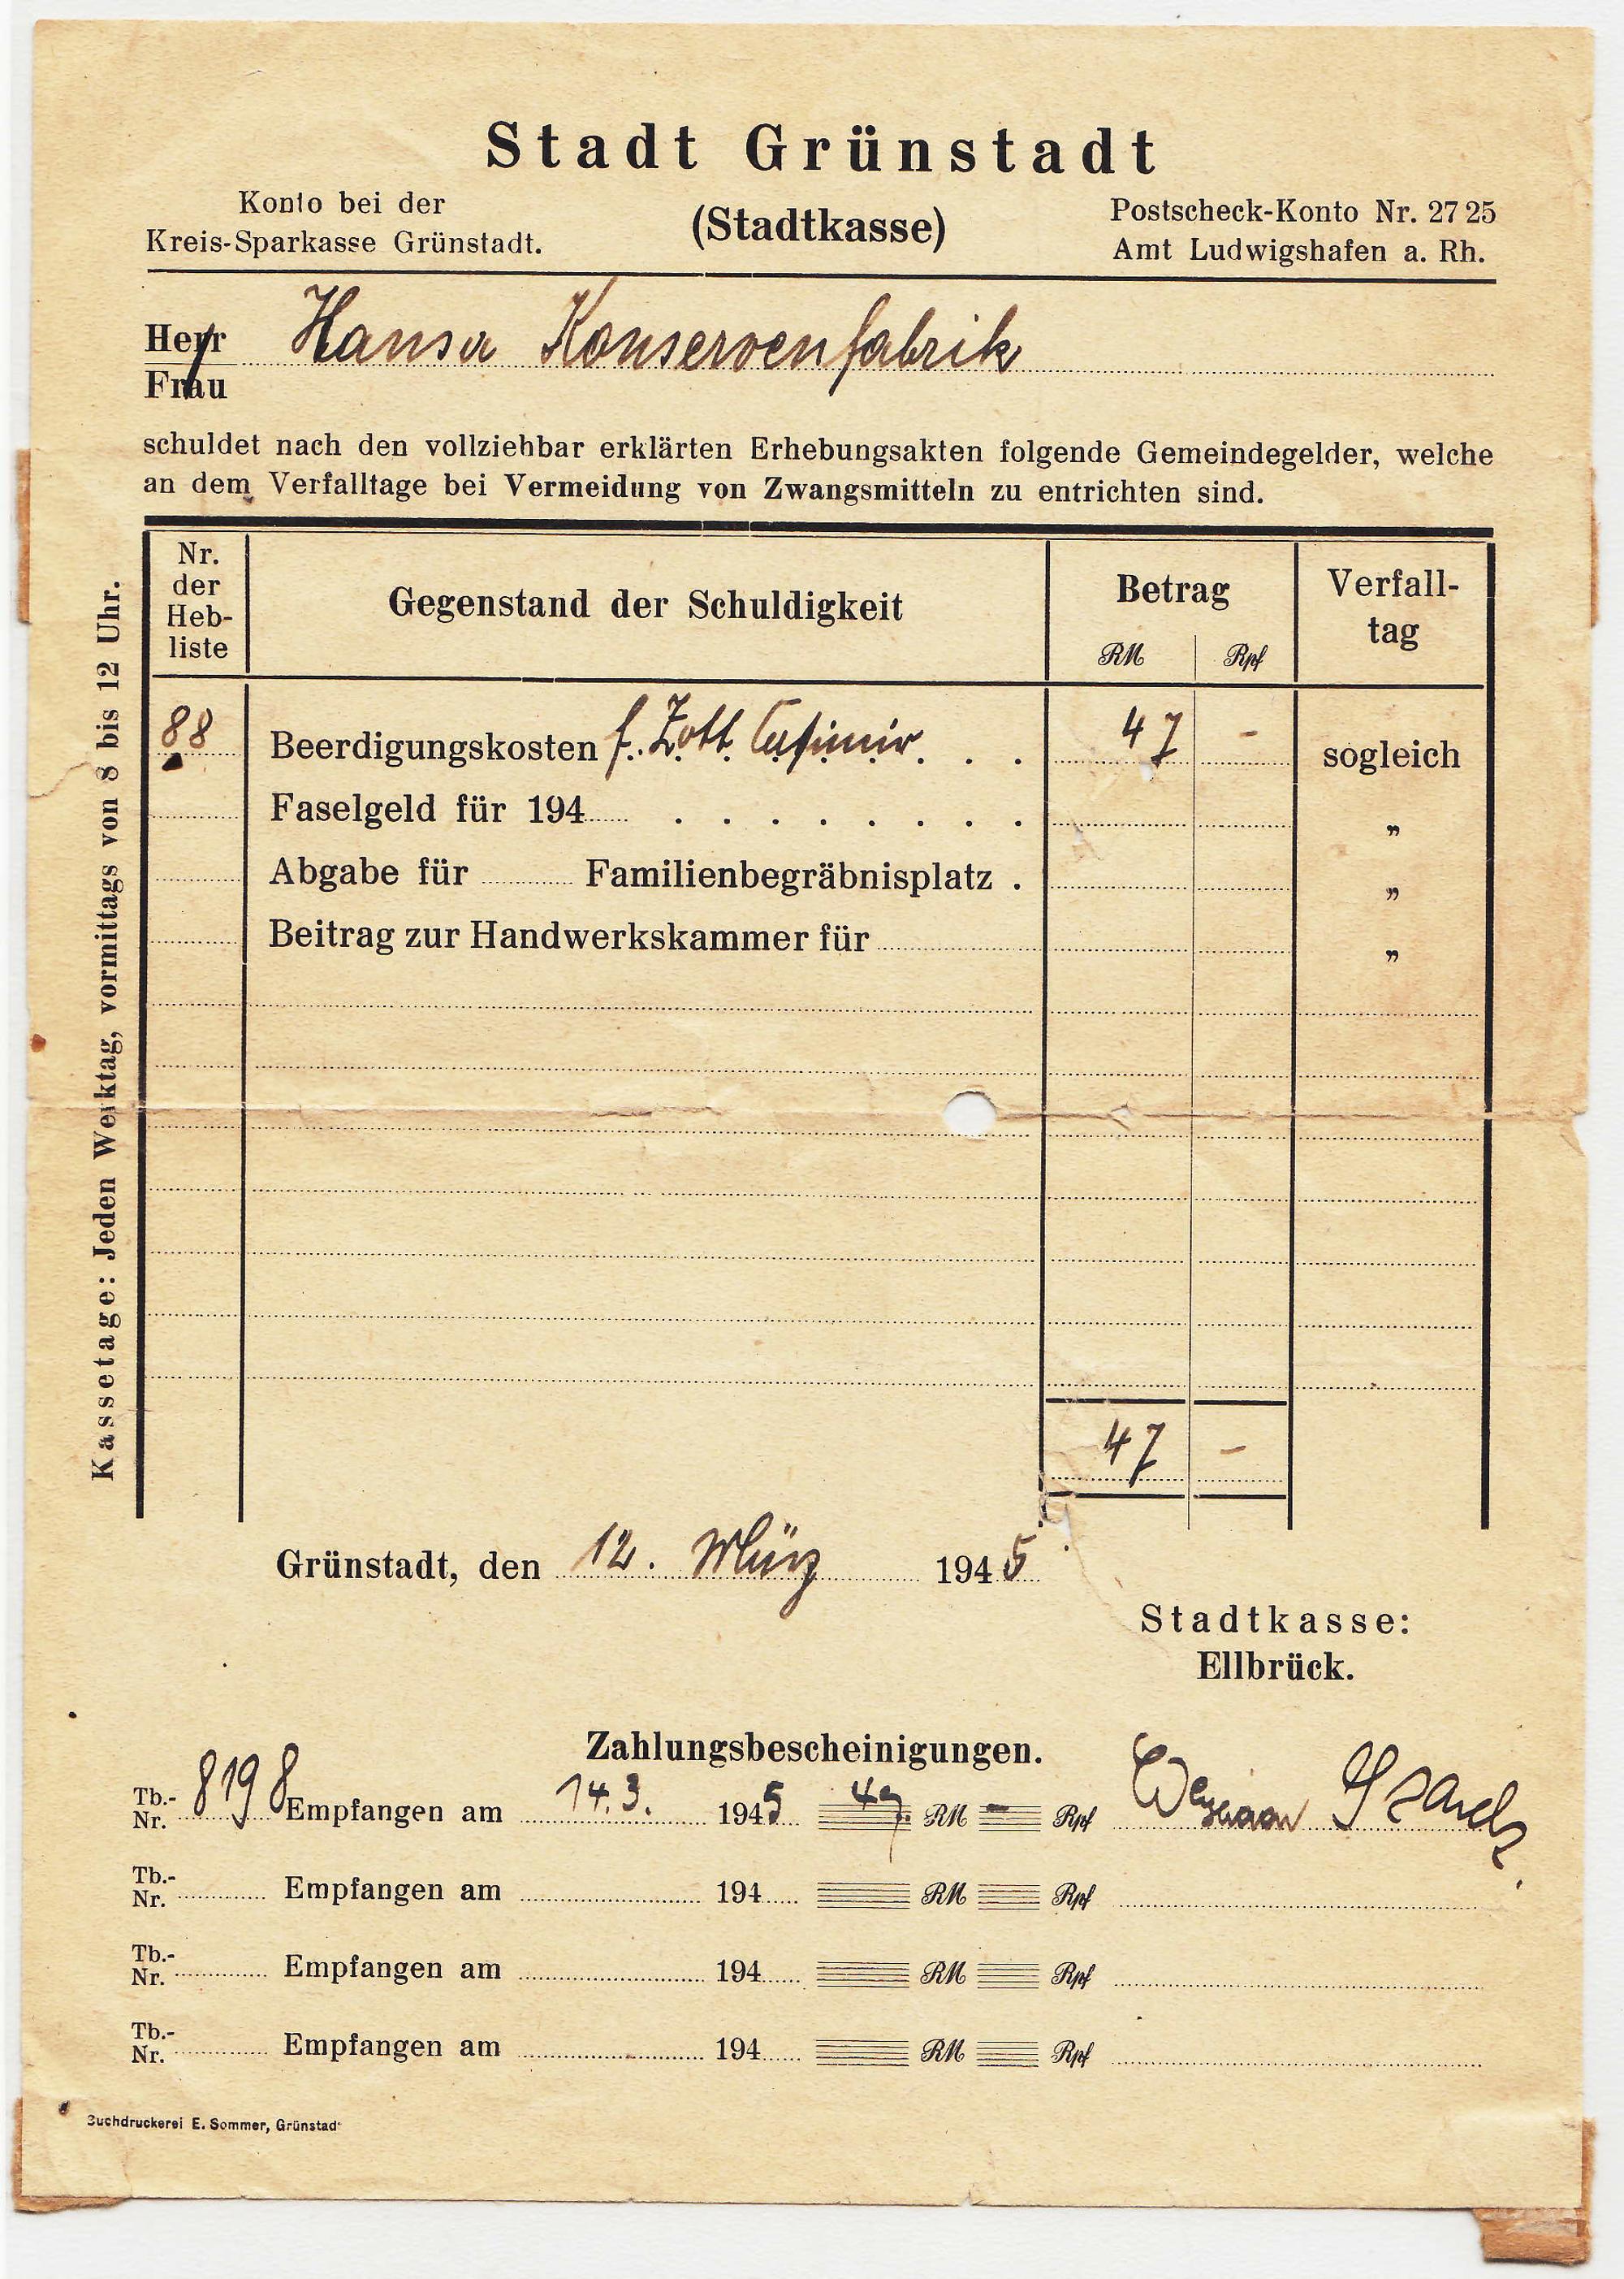 Stadt Grünstadt
(Stadtkasse)
Konto bei der
Kreis-Sparkasse Grünstadt.
Postscheck-Konto Nr. 27 25
Amt Ludwigshafen a. Rh.
Herr
Frau
Hansa Konservenfabrik
schuldet nach den vollziehbar erklärten Erhebungsakten folgende Gemeindegelder, welche
an dem Verfalltage bei Vermeidung von Zwangsmitteln zu entrichten sind.
Kassetage: Jeden Werktag, vormittags von 8 bis 12 Uhr.
Nr. der Heb-liste
Gegenstand der Schuldigkeit
Betrag
RM Rpf
Verfall-tag
88 Beerdigungskosten f. Zott Casimir . . . 47 - sogleich
Faselgeld für 194 . . . . . . . . „
Abgabe für Familienbegräbnisplatz . „
Beitrag zur Handwerkskammer für „
47 -
Grünstadt, den 12. März 1945
Stadtkasse:
Ellbrück.
Zahlungsbescheinigungen.
Tb.-Nr. 8198 Empfangen am 14.3. 1945 47. RM - Rpf
Tb.-Nr. Empfangen am 194 RM Rpf
Tb.-Nr. Empfangen am 194 RM Rpf
Tb.-Nr. Empfangen am 194 RM Rpf
Buchdruckerei E. Sommer, Grünstadt